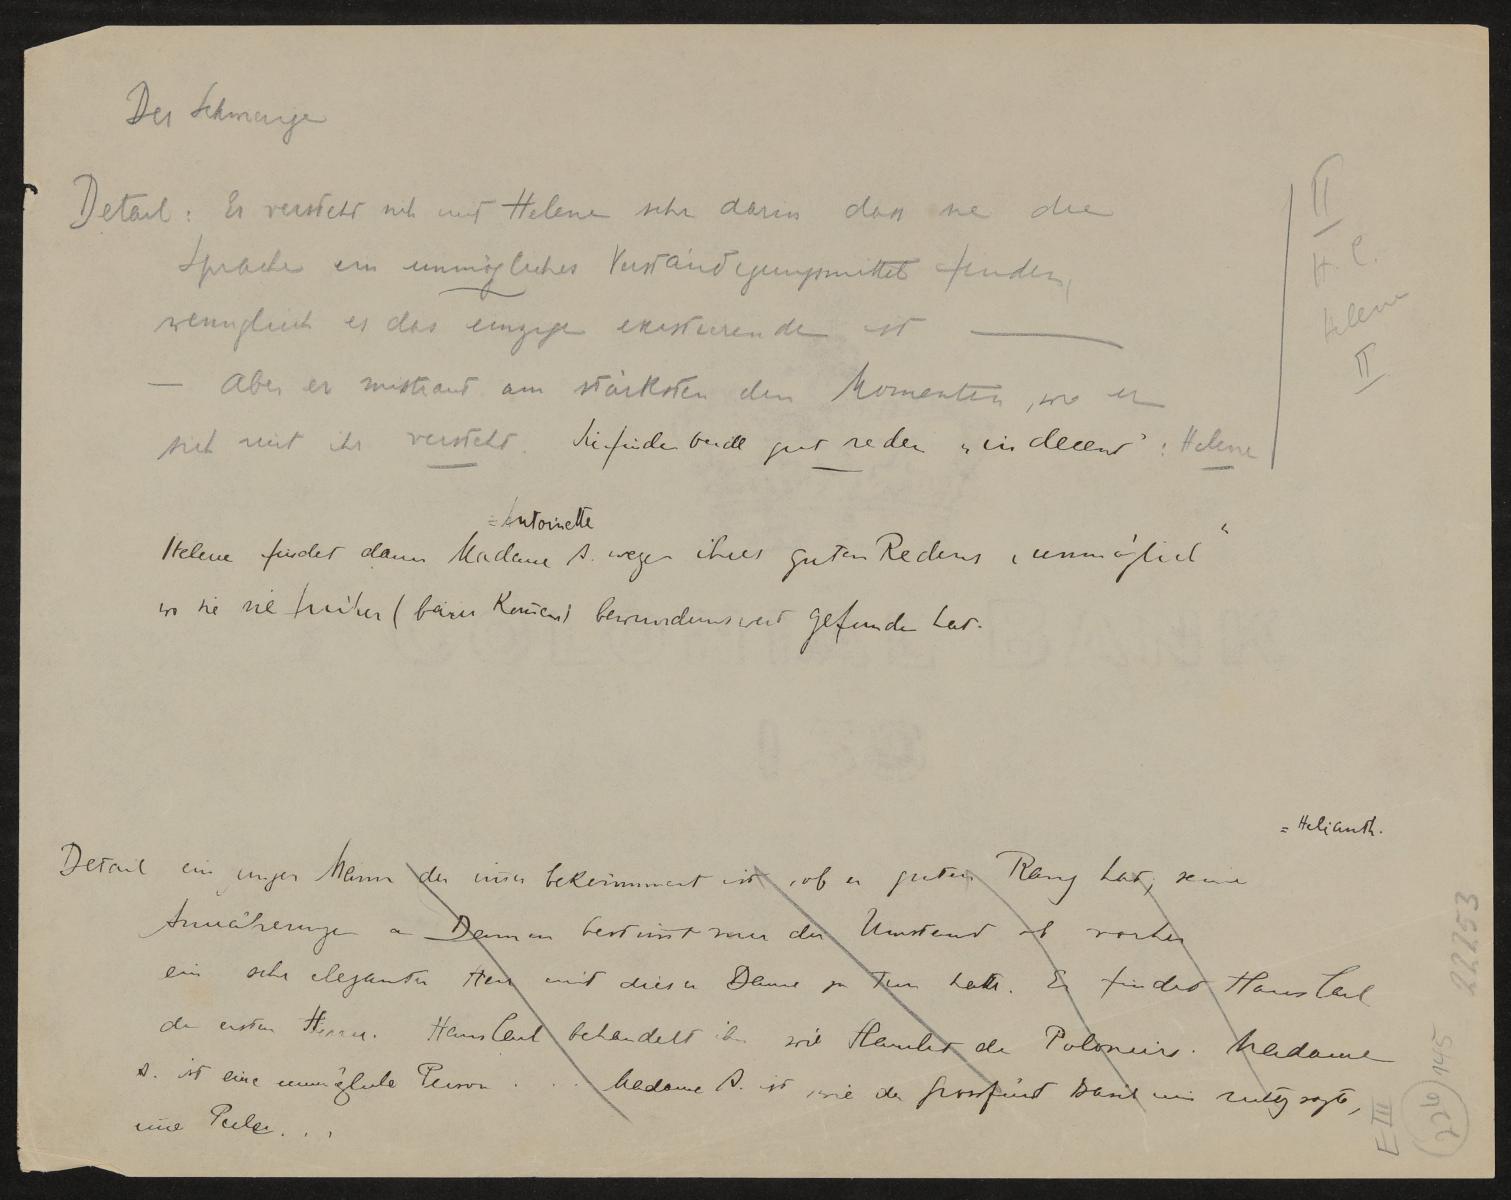 Der Schwierige
II
H. C.
Helene
II
Detail: Er versteht sich mit Helene sehr darin dass sie die
Sprache ein unmögliches Verständigungsmittel finden,
wenngleich es das einzige existierende ist —
— Aber er mistraut am stärksten den Momenten, wo er
sich mit ihr versteht. Sie finden beide gut reden „indecent": Helene
= Antoinette
Helene findet dann Madame A. wegen ihres guten Redens „unmöglich"
wo sie sie früher (beim Komen) bewundernswert gefunden hat.
= Helianth.
Detail ein junger Mann der immer bekümmert ist, ob er guten Rang hat, seine
Annäherungen an Damen bestimmt von der Umstand ob vorher
ein sehr eleganter Herr mit dieser Dame zu tun hatte. Er findet Hans Carl
den ersten Herrn. Hans Carl behandelt ihn wie Hamlet den Polonius. Madame
A. ist eine unmögliche Person . . . Madame A. ist, wie der Grossfürst richtig sagte,
eine Perle. . .
E III
226
145
22253